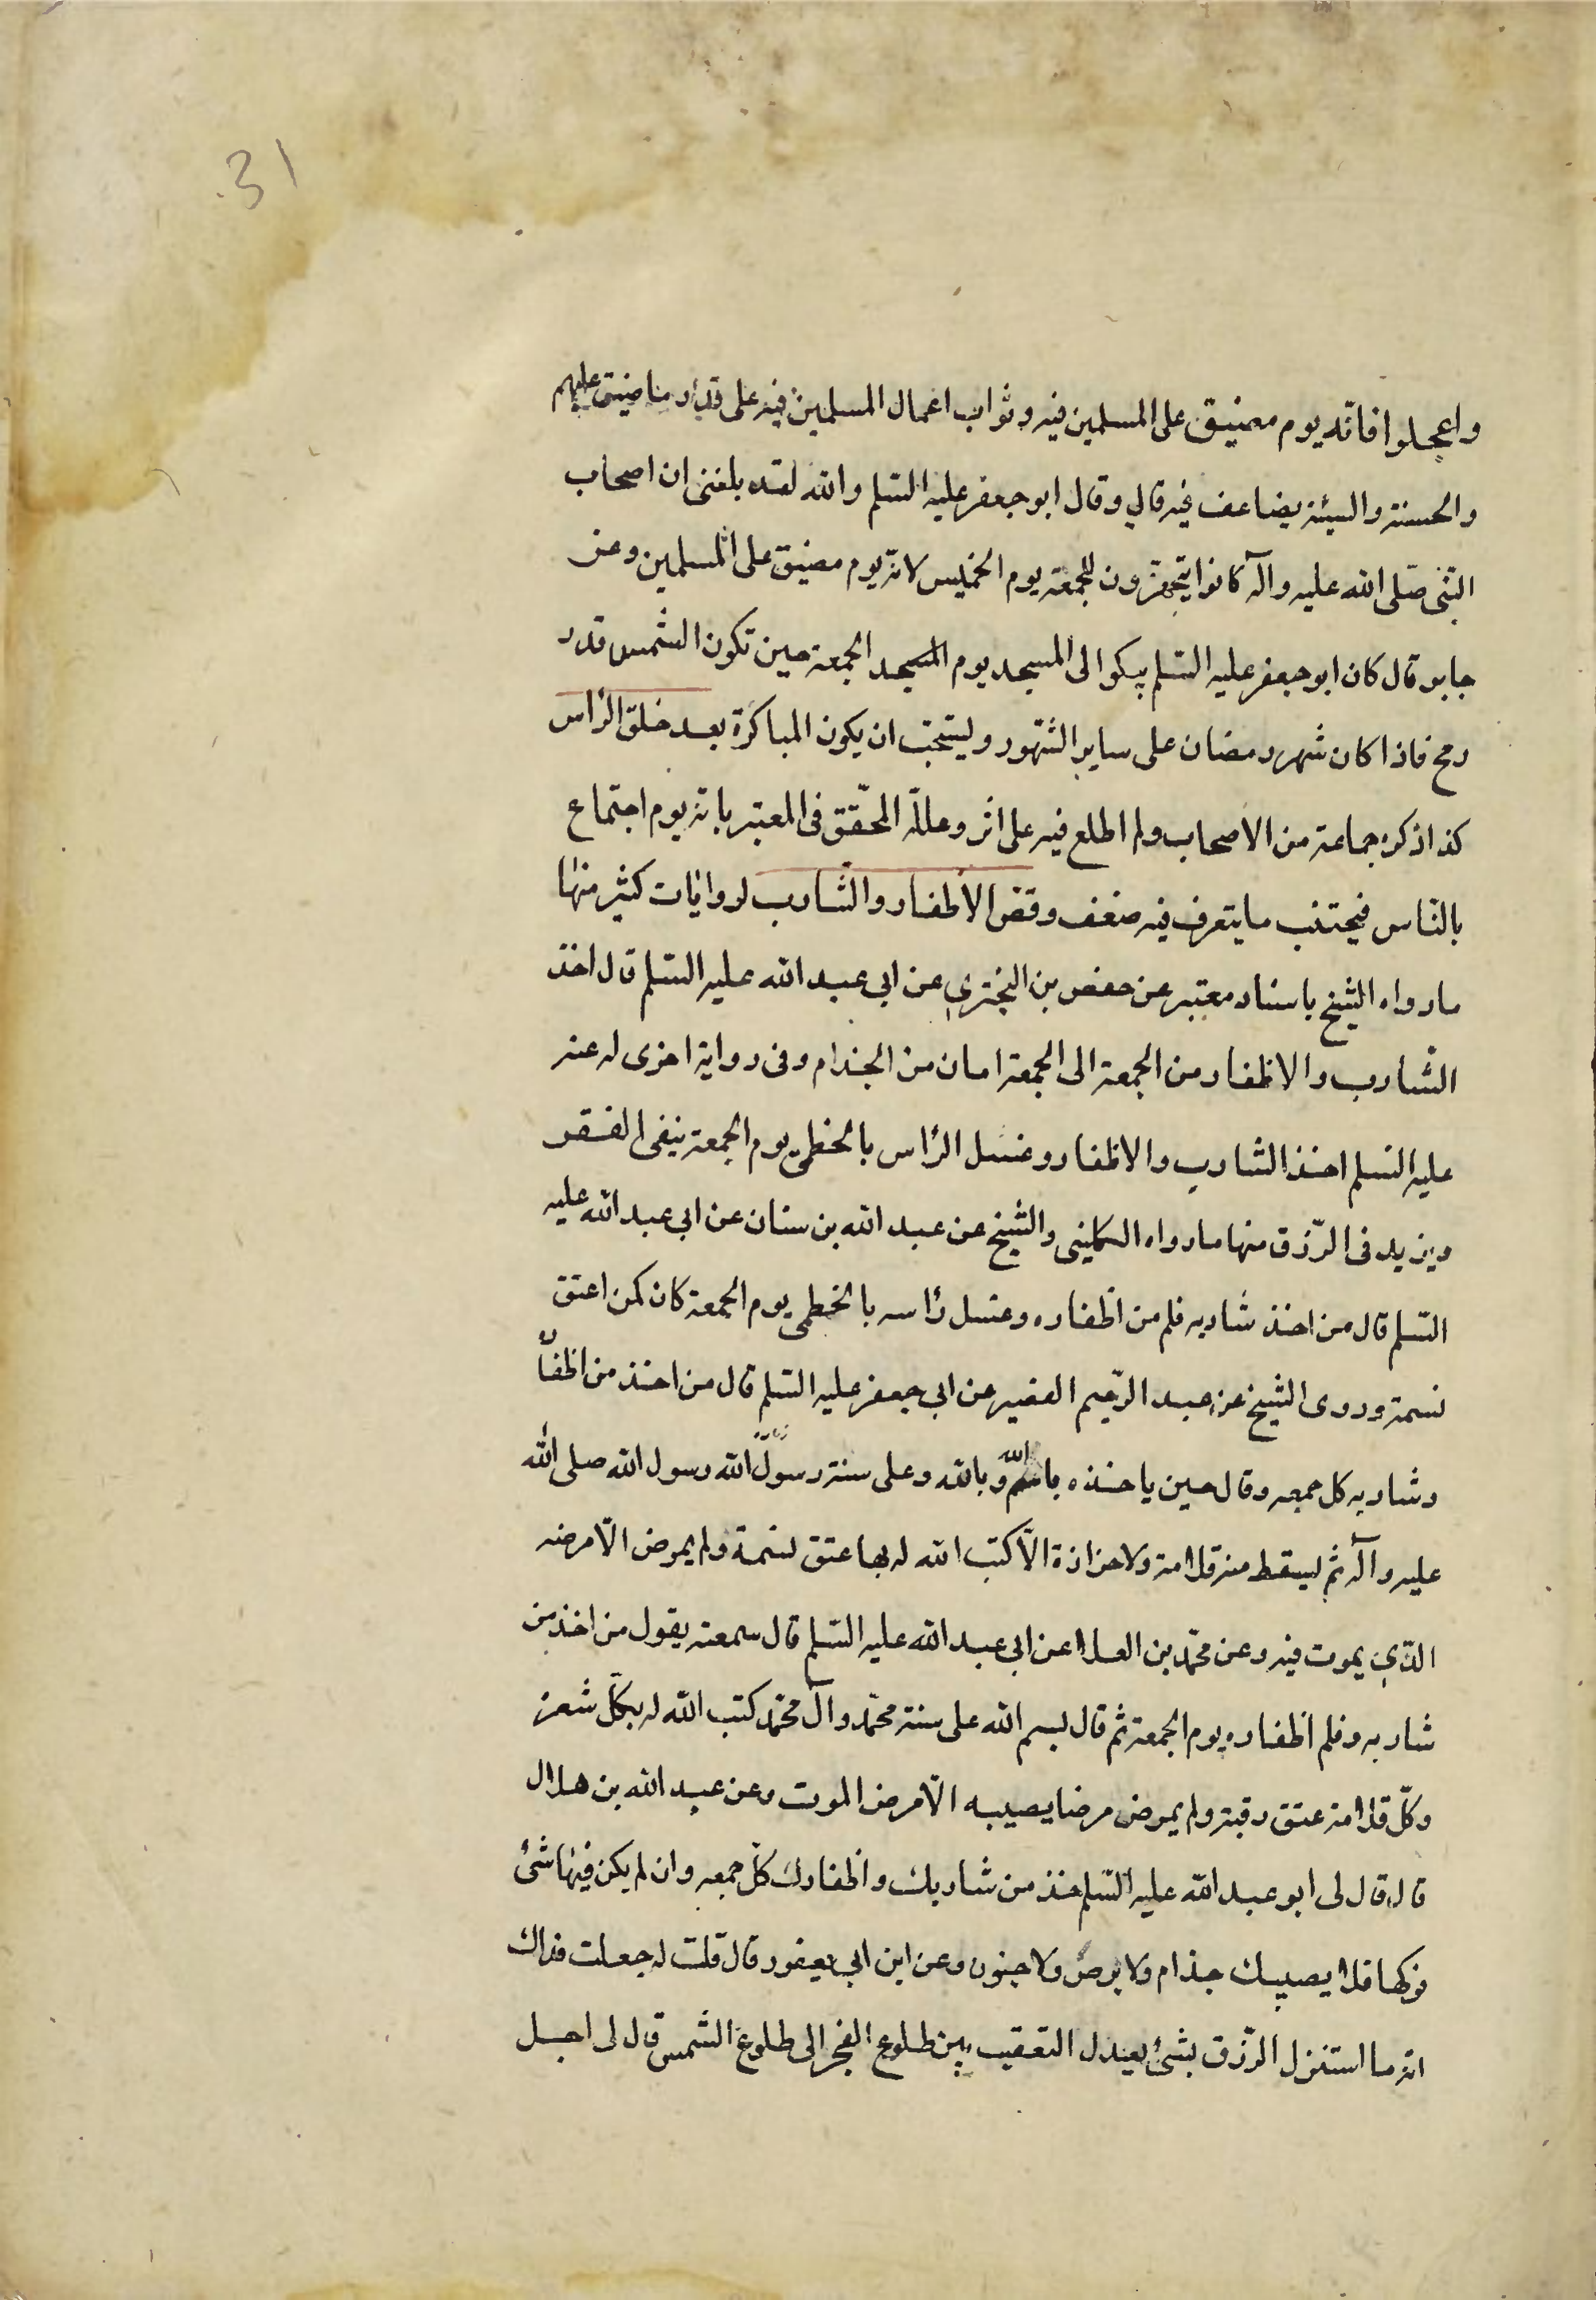 31
واعجلوا فانّه يوم مضيق على المسلمين فيه وثواب اعمال المسلمين فيه على قدر ما ضيق عليهم
والحسنة والسيئة يضاعف فيه قال وقال ابو جعفر عليه السّلم والله لقد بلغنى ان اصحاب
النّبى صلّى الله عليه وآله كانوا يتجهّزون للجمعة يوم الخميس لانّه يوم مضيق على المسلمين وعن
جابر قال كان ابو جعفر عليه السّلم يبكوا الى المسجد يوم المسجد الجمعة حين تكون الشمس قدر
رمح فاذا كان شهر رمضان على ساير الشّهور وليتحبّ ان يكون المباكرة بعد حلق الرّاس
كذا ذكره جماعة من الاصحاب ولم اطلع فيه على اثر وعلله المحقّق فى المعتبر بانّه يوم اجتماع
بالنّاس فيجتنب ما يتعرف فيه ضعف وقصّ الأظفار والشّارب لروايات كثير منها
ما رواه الشّيخ باسناد معتبر عن حفص بن البخترى عن ابى عبد الله عليه السّلم قال اخذ
الشّارب والاظفار من الجمعة الى الجمعة امان من الجذام وفى رواية اخرى له عنه
عليه السّلم اخذ الشارب والاظفار وغسل الرّاس بالخطمى يوم الجمعة ينفى الفقر
ويزيد فى الرّزق منها ما رواه الكلينى والشّيخ عن عبد الله بن سنان عن ابى عبد الله عليه
السّلم قال من اخذ شاربه قلم من اظفاره وغسل رأسه بالخطمى يوم الجمعة كان كمن اعتق
نسمة وروى الشّيخ عن عبد الرّحيم القصير عن ابى جعفر عليه السّلم قال من اخذ من اظفاره
وشاربه كل جمعه وقال حين ياخذه باسم الله وبالله وعلى سنة رسول الله رسول الله صلى الله
عليه وآله ثم ليسقط منه قلامة ولا حزازة الّا كتب الله له بها عتق نسمة ولم يمرض الّا مرضه
الّذى يموت فيه وعن محمّد بن العلا عن ابى عبد الله عليه السّلم قال سمعته يقول من اخذ من
شاربه وقلم اظفاره يوم الجمعة ثم قال بسم الله على سنة محمّد وآل محمّد كتب الله له بكلّ شعرة
وكلّ قلامة عتق رقبة ولم يمرض مرضا يصيبه الّا مرض الموت وعن عبد الله بن هلال
قال قال لى ابو عبد الله عليه السّلم خذ من شاربك واظفارك كلّ جمعه وان لم يكن فيها شئ
فزكها فلا يصيبك جذام ولا برص ولا جنون وعن ابن ابى يعفور قال قلت له جعلت فداك
انّه ما استنزل الرّزق بشئ يعدل التعقيب بين طلوع الفجر الى طلوع الشمس قال لى اجل